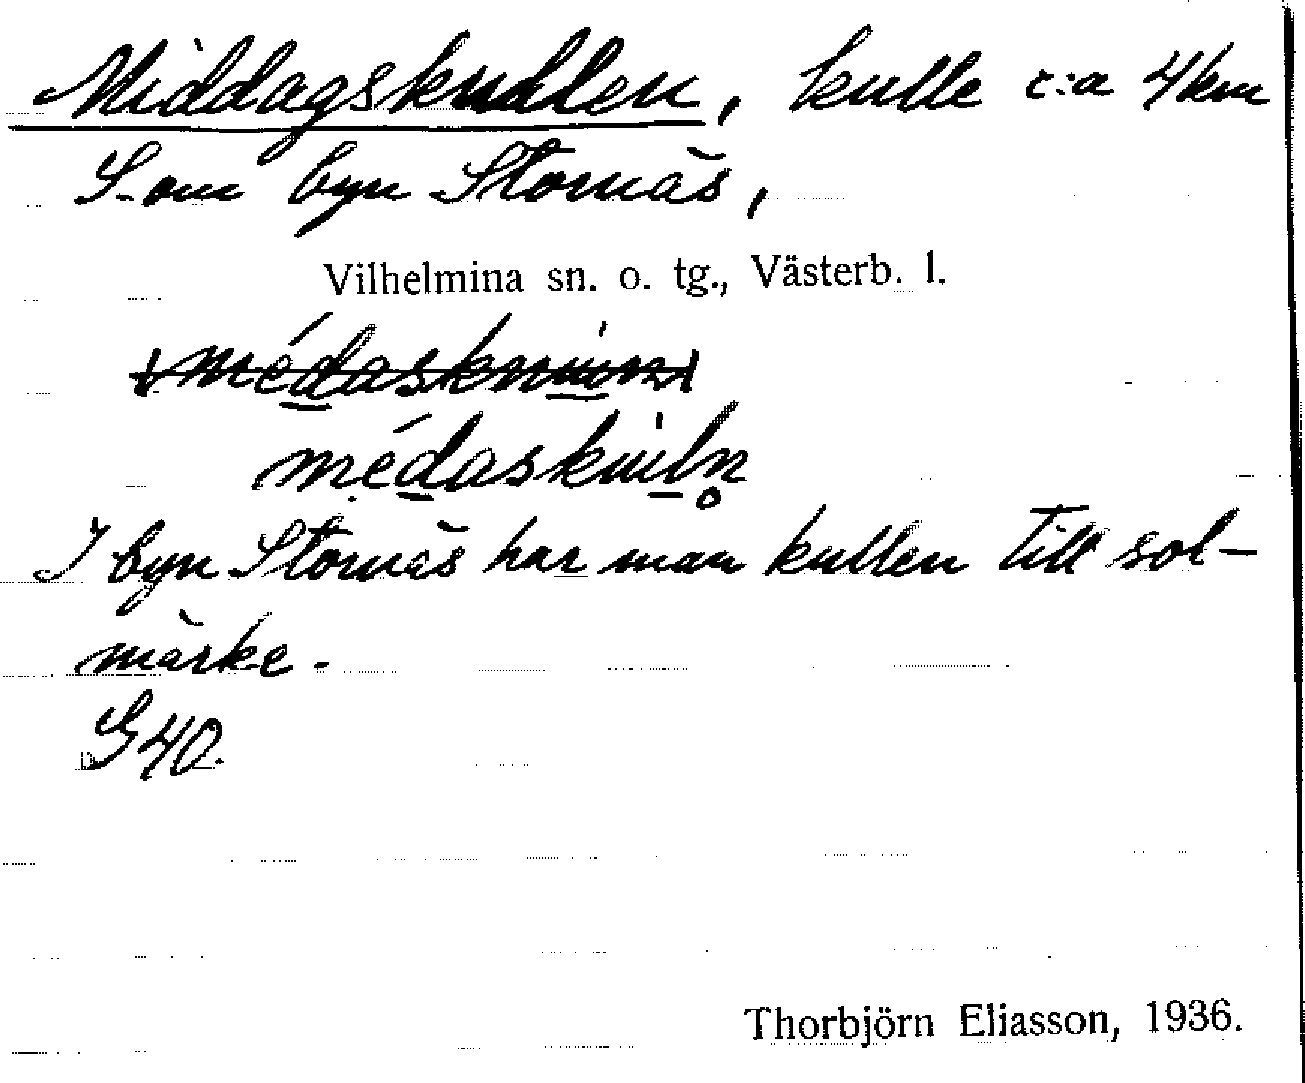 Middagskullen, kulle c:a 4 km
S. om byn Stornäs,
Vilhelmina sn. o. tg., Västerb. l.
médaskuln
I byn Stornäs har man kullen till sol-
märke.
G 40.
Thorbjörn Eliasson, 1936.